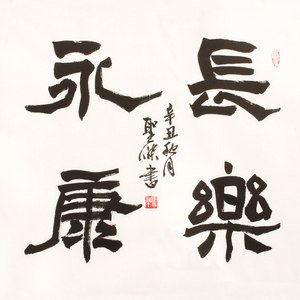 長樂
永康
辛丑秋月
聖傑書